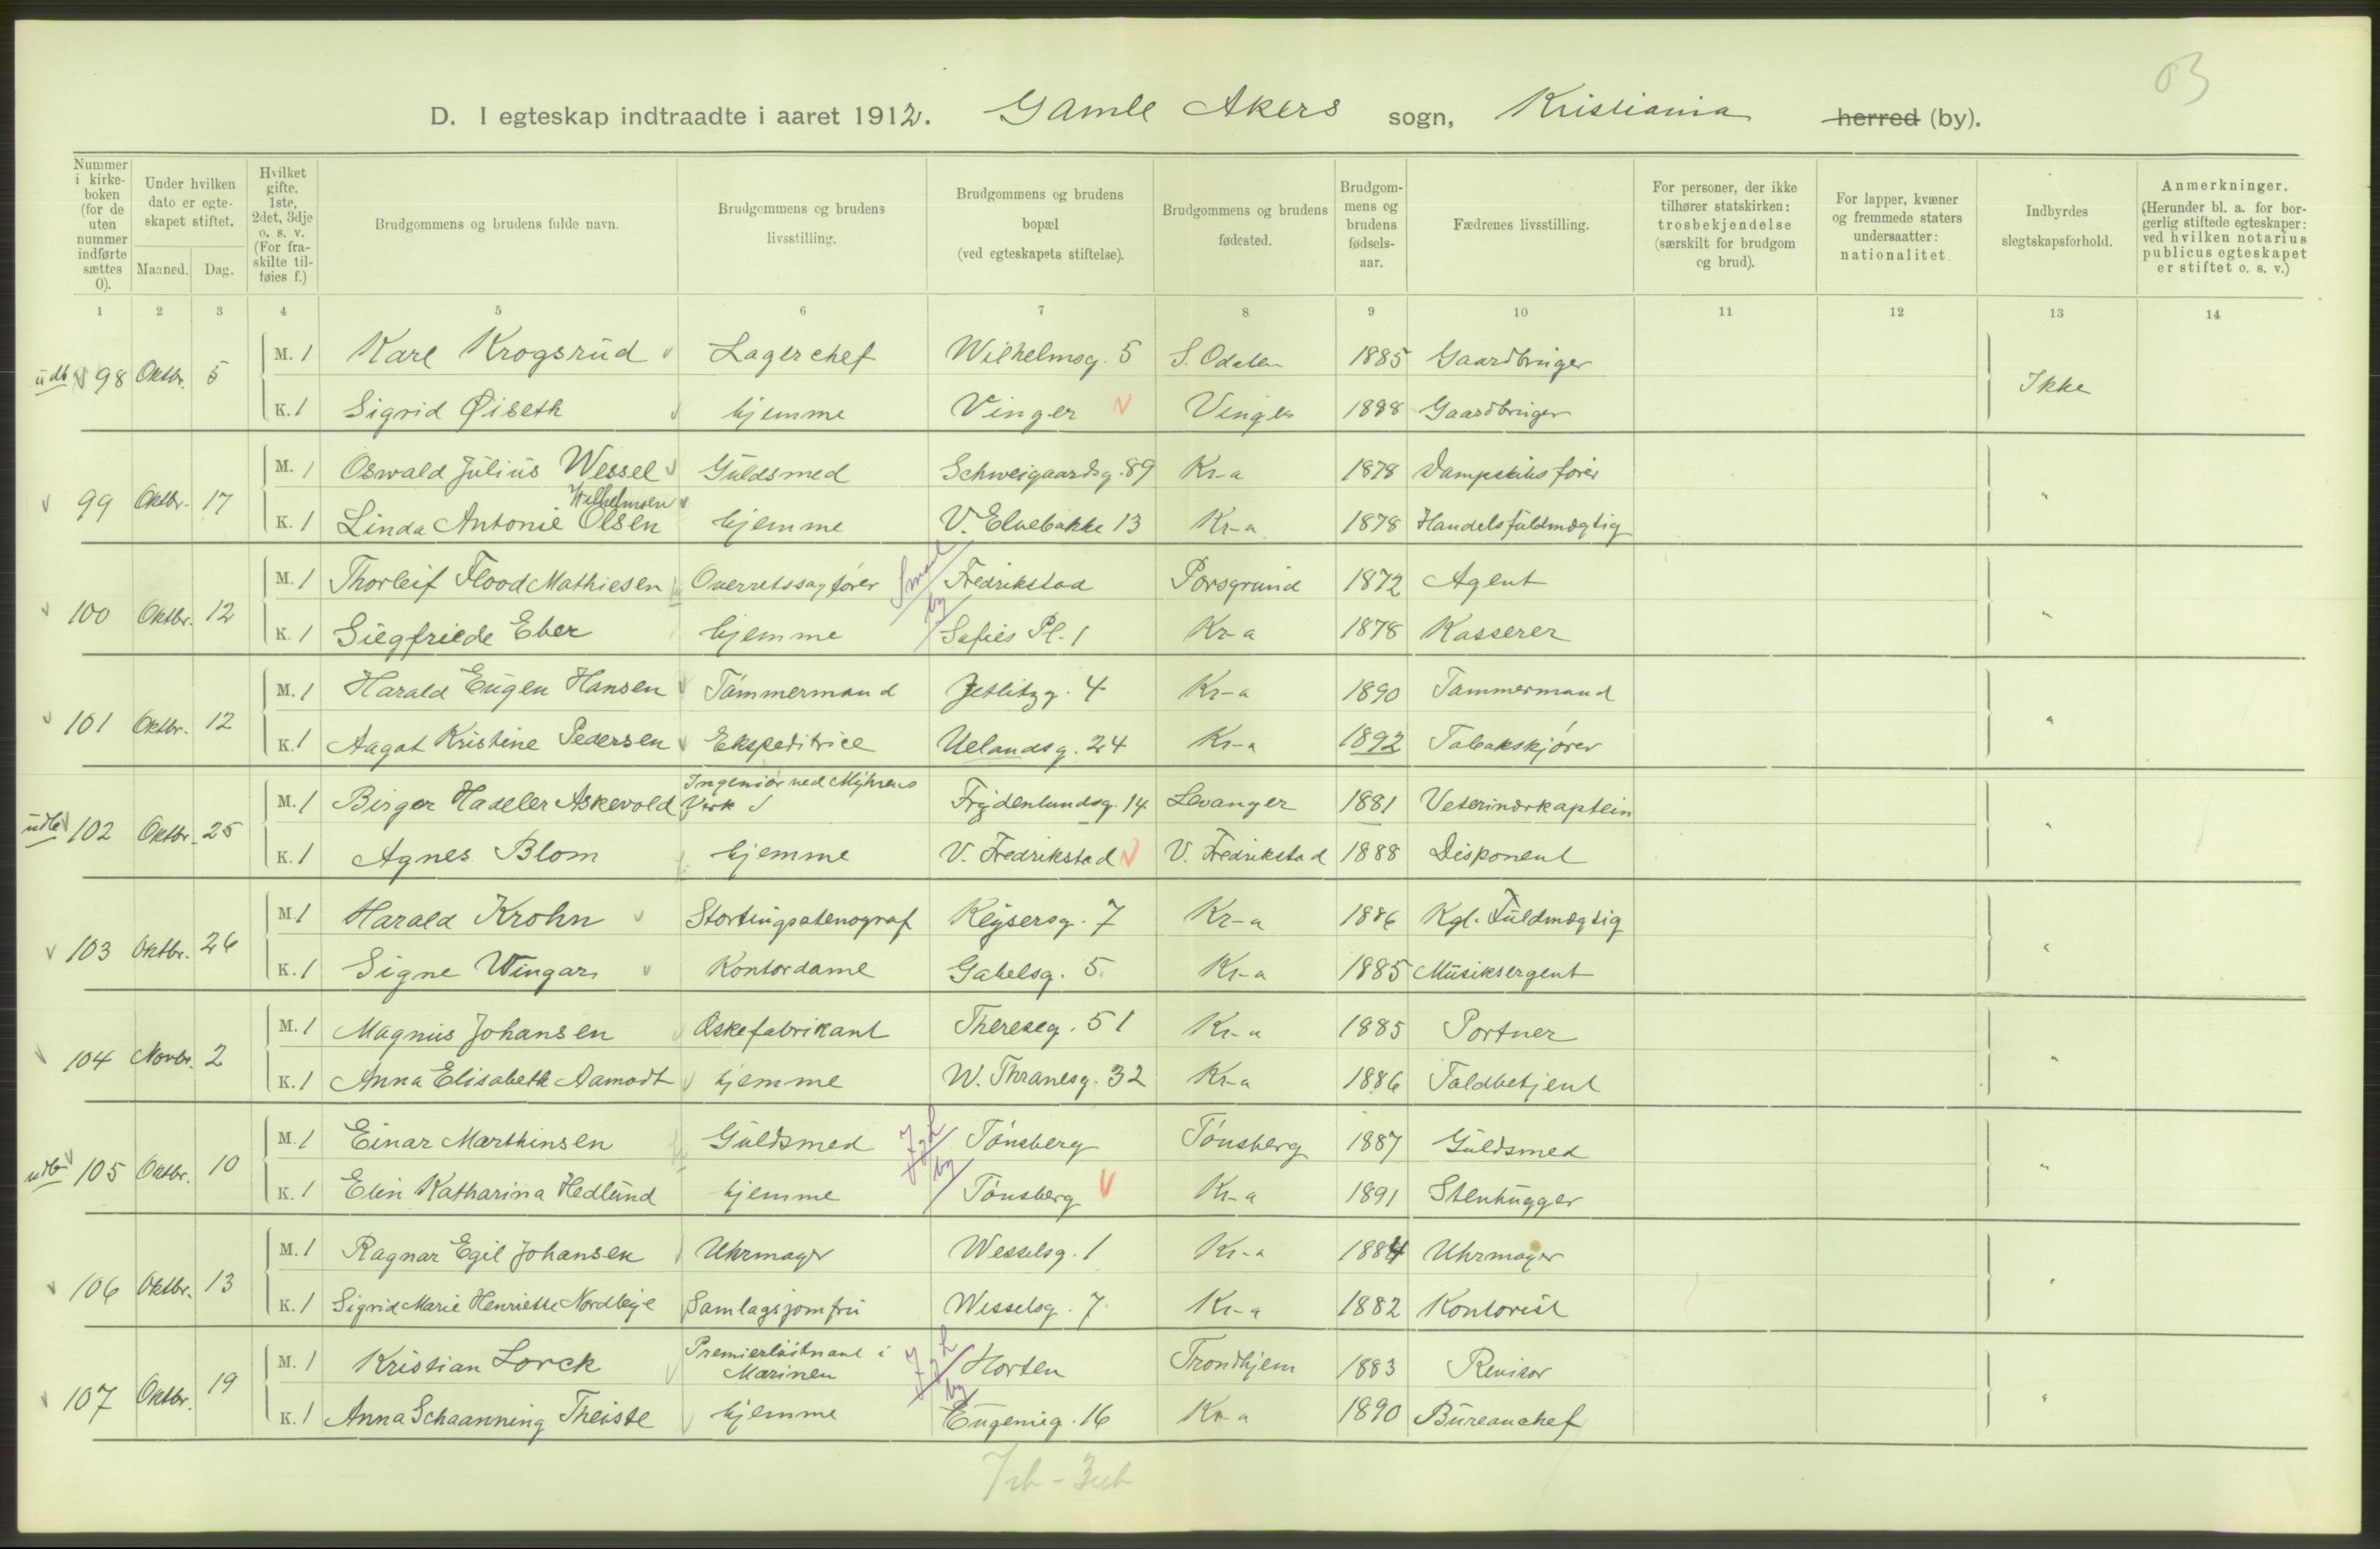 03
D. I egteskap indtraadte i aaret 1912. Gamle Akers sogn, Kristiania herred (by).
Nummer i kirke-boken (for de uten nummer indførte sættes 0).
Under hvilken dato er egte-skapet stiftet.
Maaned. Dag.
Hvilket gifte. 1ste, 2det, 3dje o. s. v. (For fra-skilte til-føies f.)
Brudgommens og brudens fulde navn.
Brudgommens og brudens livsstilling.
Brudgommens og brudens bopæl (ved egteskapets stiftelse).
Brudgommens og brudens fødested.
Brudgom-mens og brudens fødsels-aar.
Fædrenes livsstilling.
For personer, der ikke tilhører statskirken: trosbekjendelse (særskilt for brudgom og brud).
For lapper, kvæner og fremmede staters undersaatter: nationalitet.
Indbyrdes slegtskapsforhold.
Anmerkninger. (Herunder bl. a. for bor-gerlig stiftede egteskaper: ved hvilken notarius publicus egteskapet er stiftet o. s. v.)
1 2 3 4 5 6 7 8 9 10 11 12 13 14
M. 1 Karl Krogsrud Lagerchef Wilhelmsg. 5 S. Odalen 1885 Gaardbruger
udb 98 Oktbr. 5 Ikke
K. 1 Sigrid Øiseth hjemme Vinger Vinger 1888 Gaardbruger
M. 1 Oswald Julius Wessel Guldsmed Schweigaardsg. 89 Kr-a 1878 Dampskibsfører
99 Oktbr. 17 "
Wilhelmsen
K. 1 Linda Antonie Olsen hjemme V. Elvebakke 13 Kr-a 1878 Handelsfuldmægtig
M. 1 Thorleif Flood Mathiesen Overretssagfører Fredrikstad Porsgrund 1872 Agent
100 Oktbr. 12 "
K. 1 Siegfriede Eber hjemme Sofies Pl. 1 Kr-a 1878 Kasserer
M. 1 Harald Eugen Hansen Tømmermand Jetlitzg. 4 Kr-a 1890 Tømmermand
101 Oktbr. 12 "
K. 1 Aagot Kristine Pedersen Ekspeditrice Uelandsg. 24 Kr-a 1892 Tobakskjører
Ingeniør ved Myhrens
M. 1 Birger Hadeler Askevold Verk Frydenlundsg. 14 Levanger 1881 Veterinærkaptein
udb 102 Oktbr. 25 "
K. 1 Agnes Blom hjemme V. Fredrikstad V. Fredrikstad 1888 Disponent
M. 1 Harald Krohn Stortingsstenograf Keysersg. 7 Kr-a 1886 Kgl. Fuldmægtig
103 Oktbr. 26 "
K. 1 Signe Wingar Kontordame Gabelsg. 5 Kr-a 1885 Musiksergent
M. 1 Magnus Johansen Æskefabrikant Thereseg. 51 Kr-a 1885 Portner
104 Novbr. 2 "
K. 1 Anna Elisabeth Aamodt hjemme W. Thranesg. 32 Kr-a 1886 Toldbetjent
M. 1 Einar Marthinsen Guldsmed Tønsberg Tønsberg 1887 Guldsmed
udb 105 Oktbr. 10 "
K. 1 Elin Katharina Hedlund hjemme Tønsberg Kr-a 1891 Stenhugger
M. 1 Ragnar Egil Johansen Uhrmager Wesselsg. 1 Kr-a 1884 Uhrmager
106 Oktbr. 13 "
K. 1 Sigrid Marie Henriette Nordbye Samlagsjomfru Wesselsg. 7 Kr-a 1882 Kontorist
Premierløitnant i
M. 1 Kristian Lorck Marinen Horten Trondhjem 1883 Revisor
107 Oktbr. 19 "
K. 1 Anna Schaanning Theiste hjemme Eugenieg. 16 Kr a 1890 Bureauchef